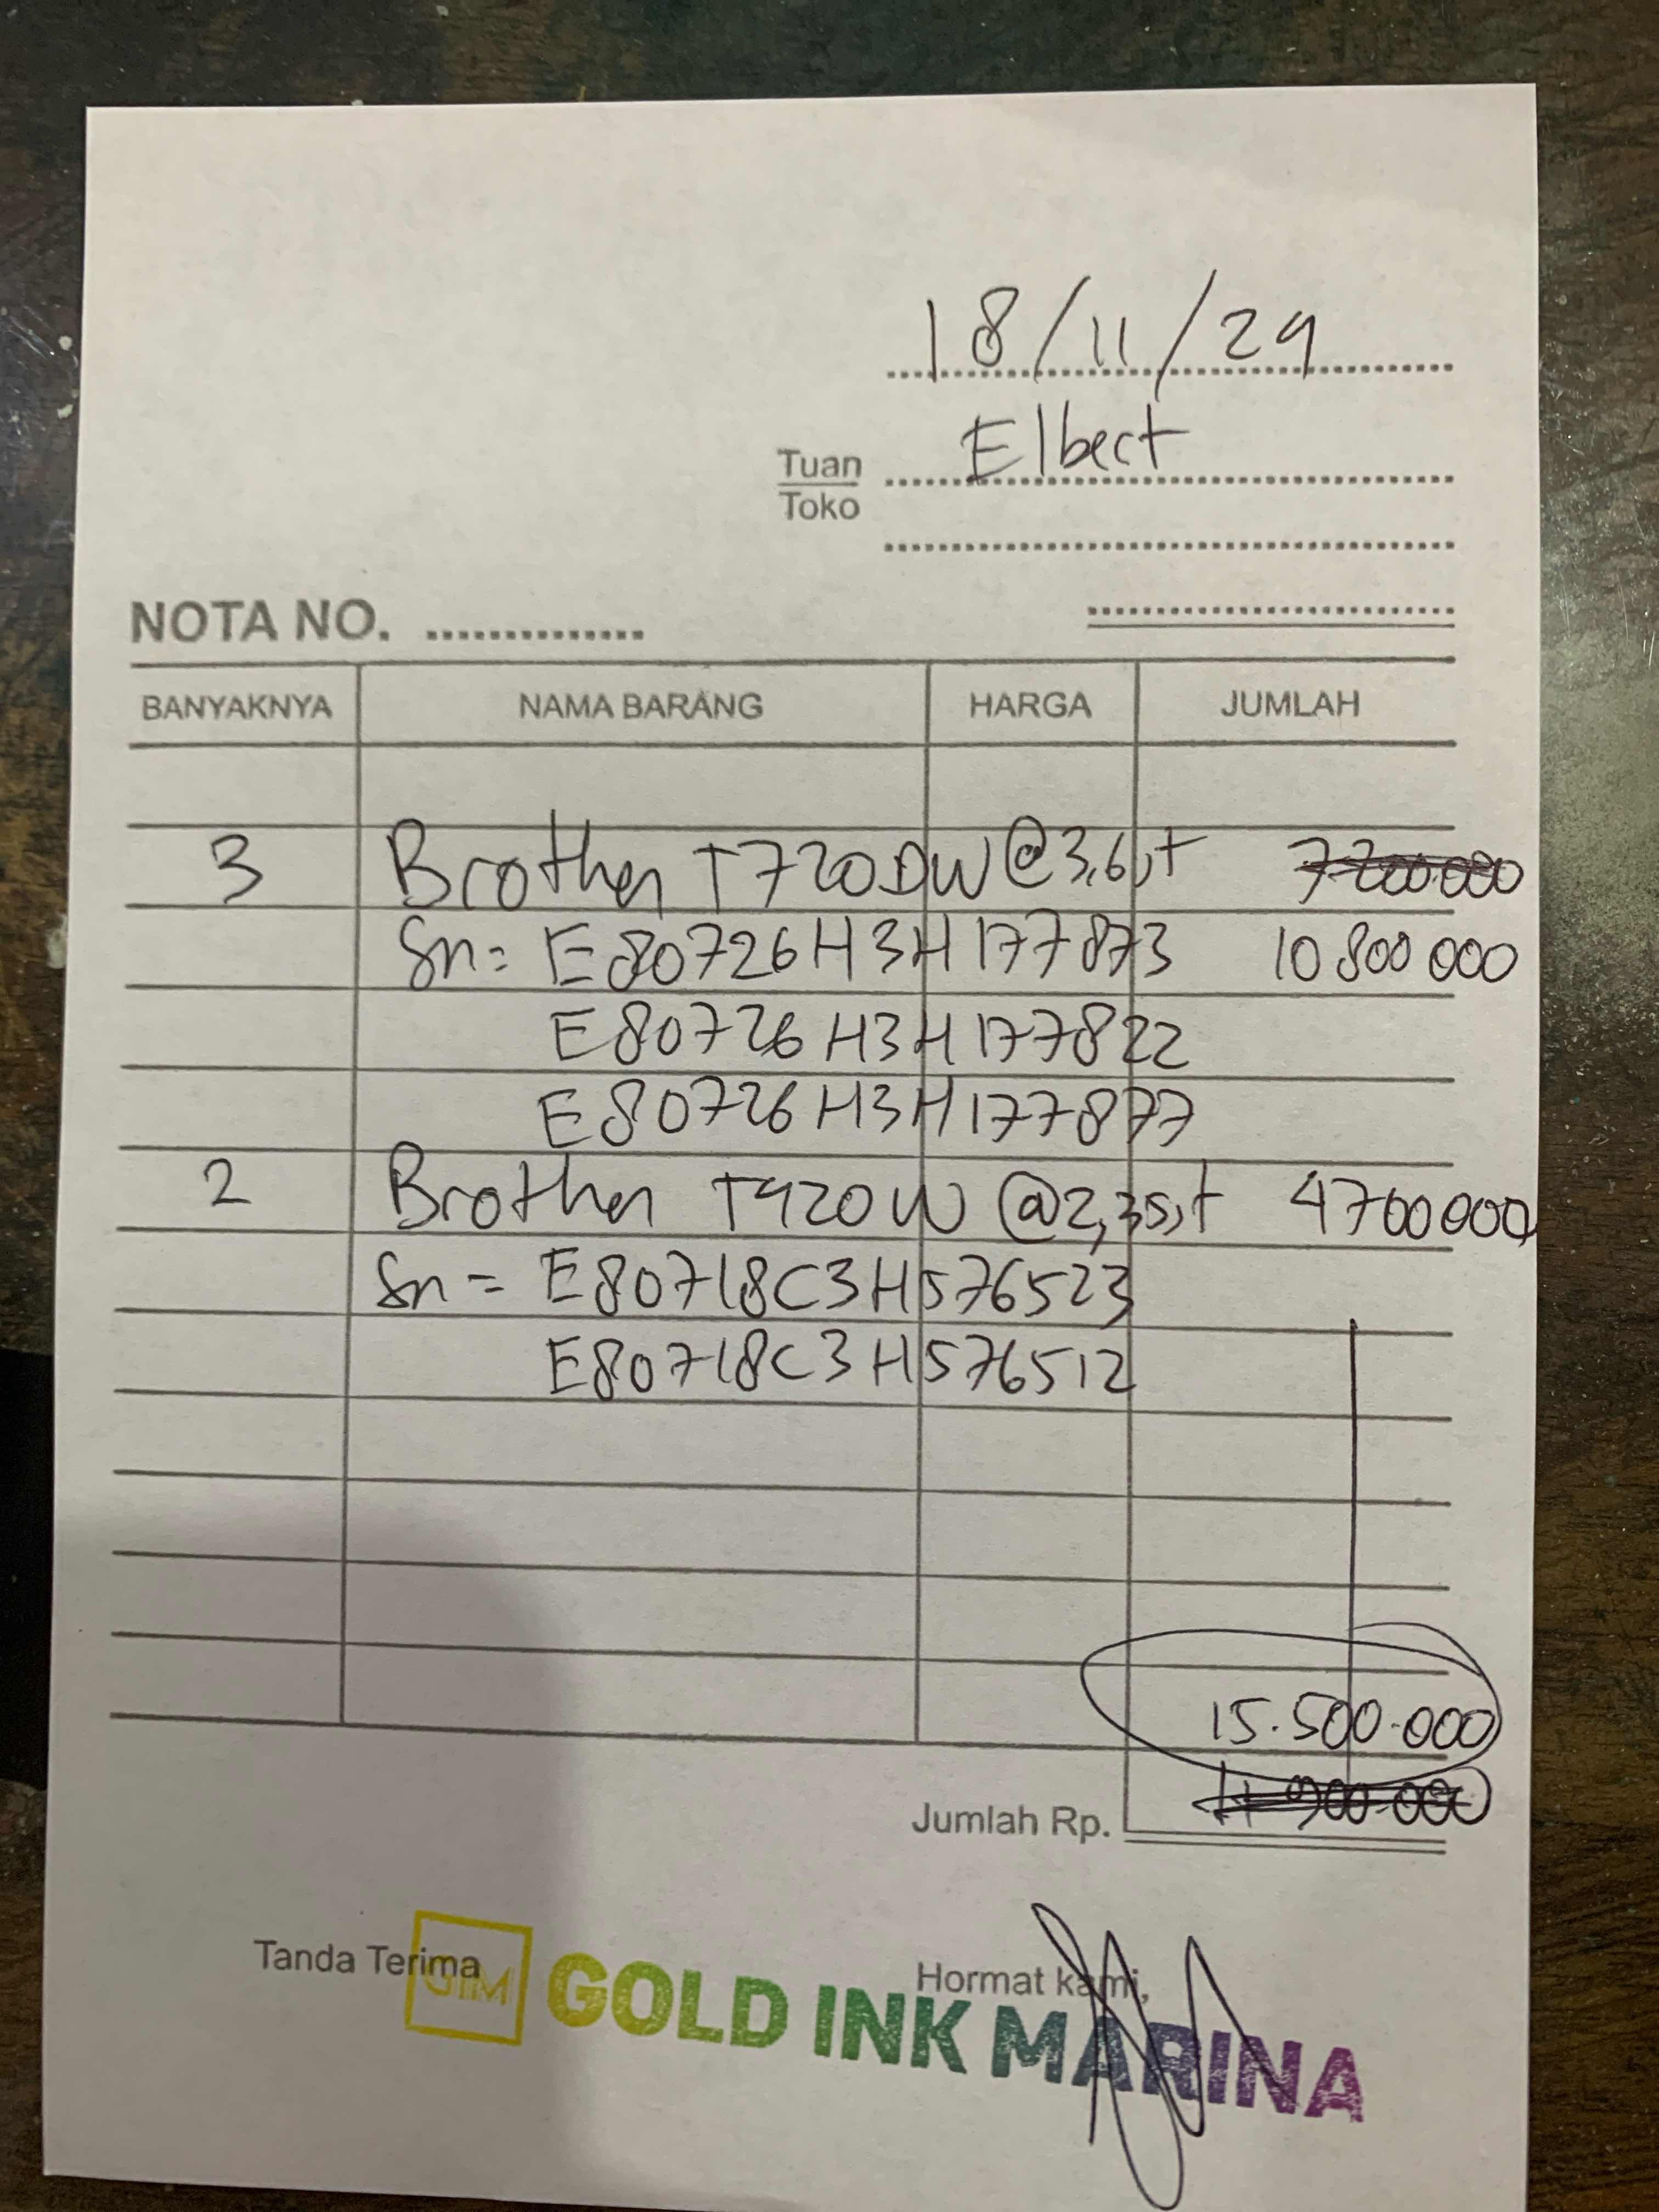 18/11/24
Tuan Elbert
Toko
NOTA NO. ..............
BANYAKNYA NAMA BARANG HARGA JUMLAH
3 Brother T720DW @3,6jt 7200.000
Sn= E80726H3H177873 10 800 000
E80726H3H177822
E80726H3H177877
2 Brother T420W @2,35jt 4700000
Sn = E80718C3H576523
E80718C3H576512
15.500.000
Jumlah Rp. 11 900.000
Tanda Terima Hormat kami,
GIM GOLD INK MARINA